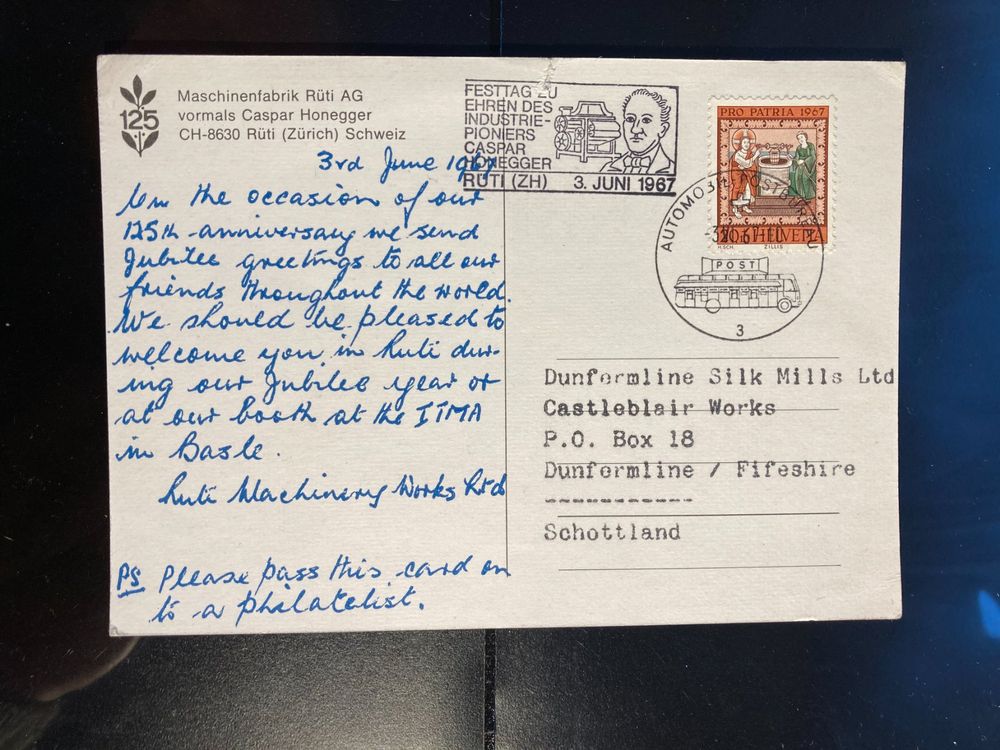 125
Maschinenfabrik Rüti AG
vormals Caspar Honegger
CH-8630 Rüti (Zürich) Schweiz
3rd June 1967
On the occasion of our
125th anniversary we send
Jubilee greetings to all our
friends throughout the world.
We should be pleased to
welcome you in Ruti dur-
ing our Jubilee year or
at our booth at the ITMA
in Basle.
Ruti Machinery Works Ltd
PS Please pass this card on
to a philatelist.
FESTTAG ZU
EHREN DES
INDUSTRIE-
PIONIERS
CASPAR
HONEGGER
RÜTI (ZH) 3. JUNI 1967
PRO PATRIA 1967
HELVETIA
H.SCH. ZILLIS
AUTOMOBIL-POSTBUREAU
POST
3
Dunfermline Silk Mills Ltd
Castleblair Works
P.O. Box 18
Dunfermline / Fifeshire
Schottland